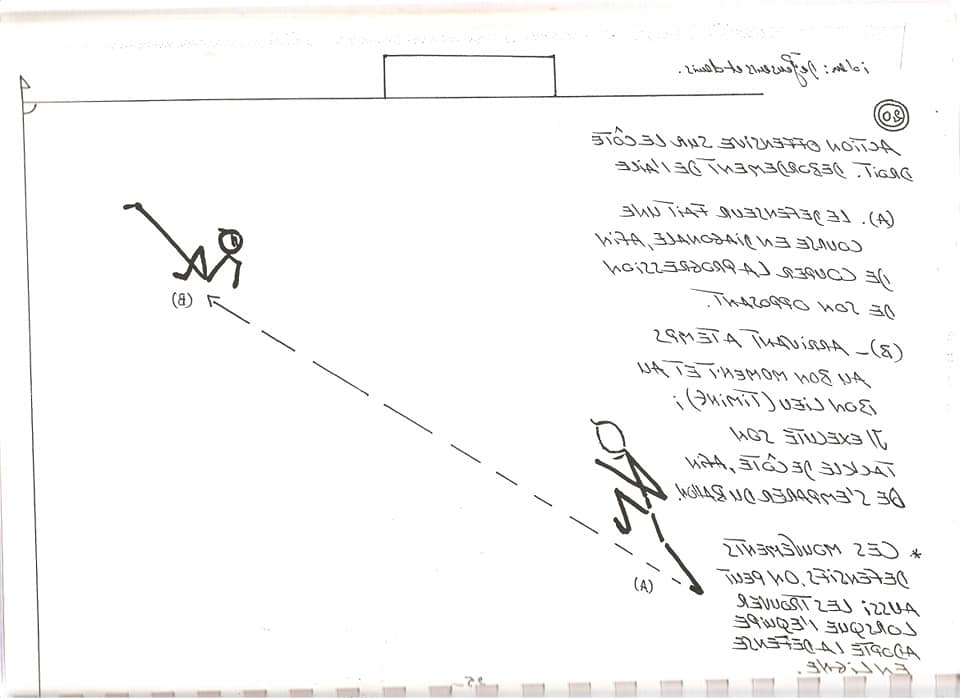 idem : Défenseurs et demis.
20
ACTION OFFENSIVE SUR LE CÔTÉ
DROIT. DEBORDEMENT DE l'AILE
(A). LE DEFENSEUR FAIT UNE
COURSE EN DIAGONALE, AFIN
DE COUPER LA PROGRESSION
DE SON OPPOSANT.
(B) - ARRIVANT A TEMPS
AU BON MOMENT ET AU
BON LIEU (TIMING) ;
Il EXECUTE SON
TACKLE DE CÔTÉ, AFIN
DE S'EMPARER DU BALLON.
* CES MOUVEMENTS
DEFENSIFS, ON PEUT
AUSSI LES TROUVER
LORSQUE l'EQUIPE
ADOPTE LA DEFENSE
EN LIGNE.
(B)
(A)